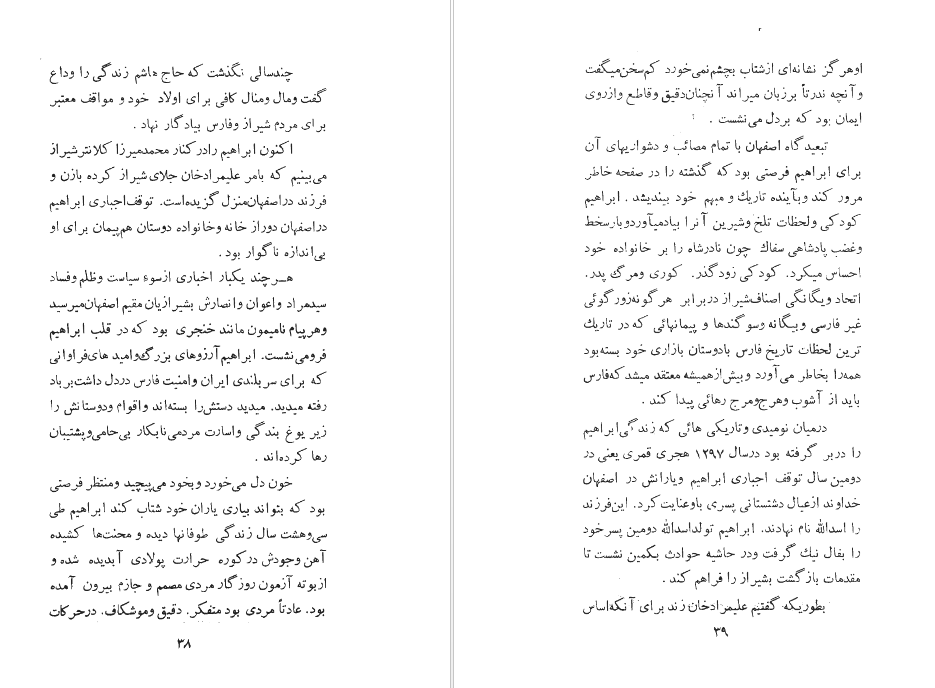 چندسالی نگذشت که حاج هاشم زندگی را وداع
گفت ومال ومنال کافی برای اولاد خود و مواقف معتبر
برای مردم شیراز وفارس بیادگار نهاد .
اکنون ابراهیم رادرکنار محمدمیرزا کلانترشیراز
می‌بینیم که بامر علیمرادخان جلای شیراز کرده بازن و
فرزند دراصفهان‌منزل گزیده‌است. توقف‌اجباری ابراهیم
دراصفهان دوراز خانه وخانواده دوستان هم‌پیمان برای او
بی‌اندازه ناگوار بود .
هـرچند یکبار اخباری ازسوء سیاست وظلم وفساد
سیدمراد واعوان وانصارش بشیرازیان مقیم اصفهان‌میرسید
وهرپیام نامیمون مانند خنجری بود که در قلب ابراهیم
فرومی‌نشست. ابراهیم آرزوهای بزرگ‌وامید های‌فراوانی
که برای سربلندی ایران وامنیت فارس دردل داشت‌برباد
رفته میدید. میدید دستش‌را بسته‌اند واقوام ودوستانش را
زیر یوغ بندگی واسارت مردمی‌نابکار بی‌حامی‌وپشتیبان
رها کرده‌اند .
خون دل می‌خورد وبخود می‌پیچید ومنتظر فرصتی
بود که بتواند بیاری یاران خود شتاب کند ابراهیم طی
سی‌وهشت سال زندگی طوفانها دیده و محنت‌ها کشیده
آهن وجودش درکوره حرارت پولادی آبدیده شده و
ازبوته آزمون روزگار مردی مصمم و جازم بیرون آمده
بود. عادتاً مردی بود متفکر. دقیق وموشکاف. درحرکات
۳۸
اوهرگز نشانه‌ای ازشتاب بچشم‌نمی‌خورد کم‌سخن‌میگفت
وآنچه ندرتاً برزبان میراند آنچنان‌دقیق وقاطع وازروی
ایمان بود که بردل می‌نشست .
تبعیدگاه اصفهان با تمام مصائب و دشواریهای آن
برای ابراهیم فرصتی بود که گذشته را در صفحه خاطر
مرور کند وبآینده تاریك و مبهم خود بیندیشد . ابراهیم
کودکی ولحظات تلخ وشیرین آنرا بیادمیآوردوبارسخط
وغضب پادشاهی سفاك چون نادرشاه را بر خانواده خود
احساس میکرد. کودکی زودگذر. کوری ومرگ پدر.
اتحاد ویگانگی اصناف‌شیراز دربرابر هرگونه‌زورگوئی
غیر فارسی وبیگانه وسوگندها و پیمانهائی که در تاریك
ترین لحظات تاریخ فارس بادوستان بازاری خود بسته‌بود
همه‌را بخاطر می‌آورد وبیش‌ازهمیشه معتقد میشد که‌فارس
باید از آشوب وهرج‌ومرج رهائی پیدا کند .
درمیان نومیدی وتاریکی هائی که زندگی‌ابراهیم
را دربر گرفته بود درسال ۱۲۹۷ هجری قمری یعنی در
دومین سال توقف اجباری ابراهیم ویارانش در اصفهان
خداوند ازعیال دشتستانی پسری باوعنایت‌کرد. این‌فرزند
را اسدالله نام نهادند. ابراهیم تولداسدالله دومین پسرخود
را بفال نیك گرفت ودر حاشیه حوادث بکمین نشست تا
مقدمات بازگشت بشیراز را فراهم کند .
بطوریکه گفتیم علیمرادخان زند برای آنکه‌اساس
۳۹